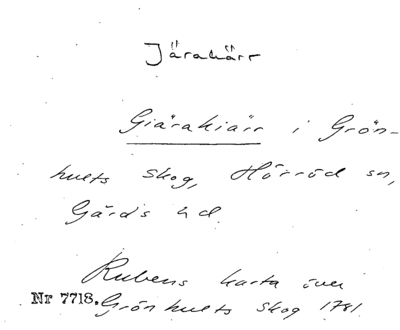 Järakärr
Giärakiärr i Grön-
hults skog, Hörröd sn,
Gärds hd.
Rubens karta över
Nr 7718. Grönhults skog 1781.